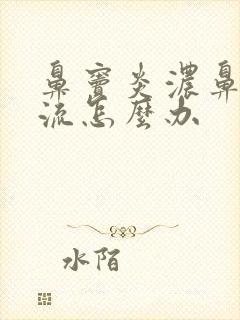 鼻窦炎浓鼻
流怎麼办
水陌